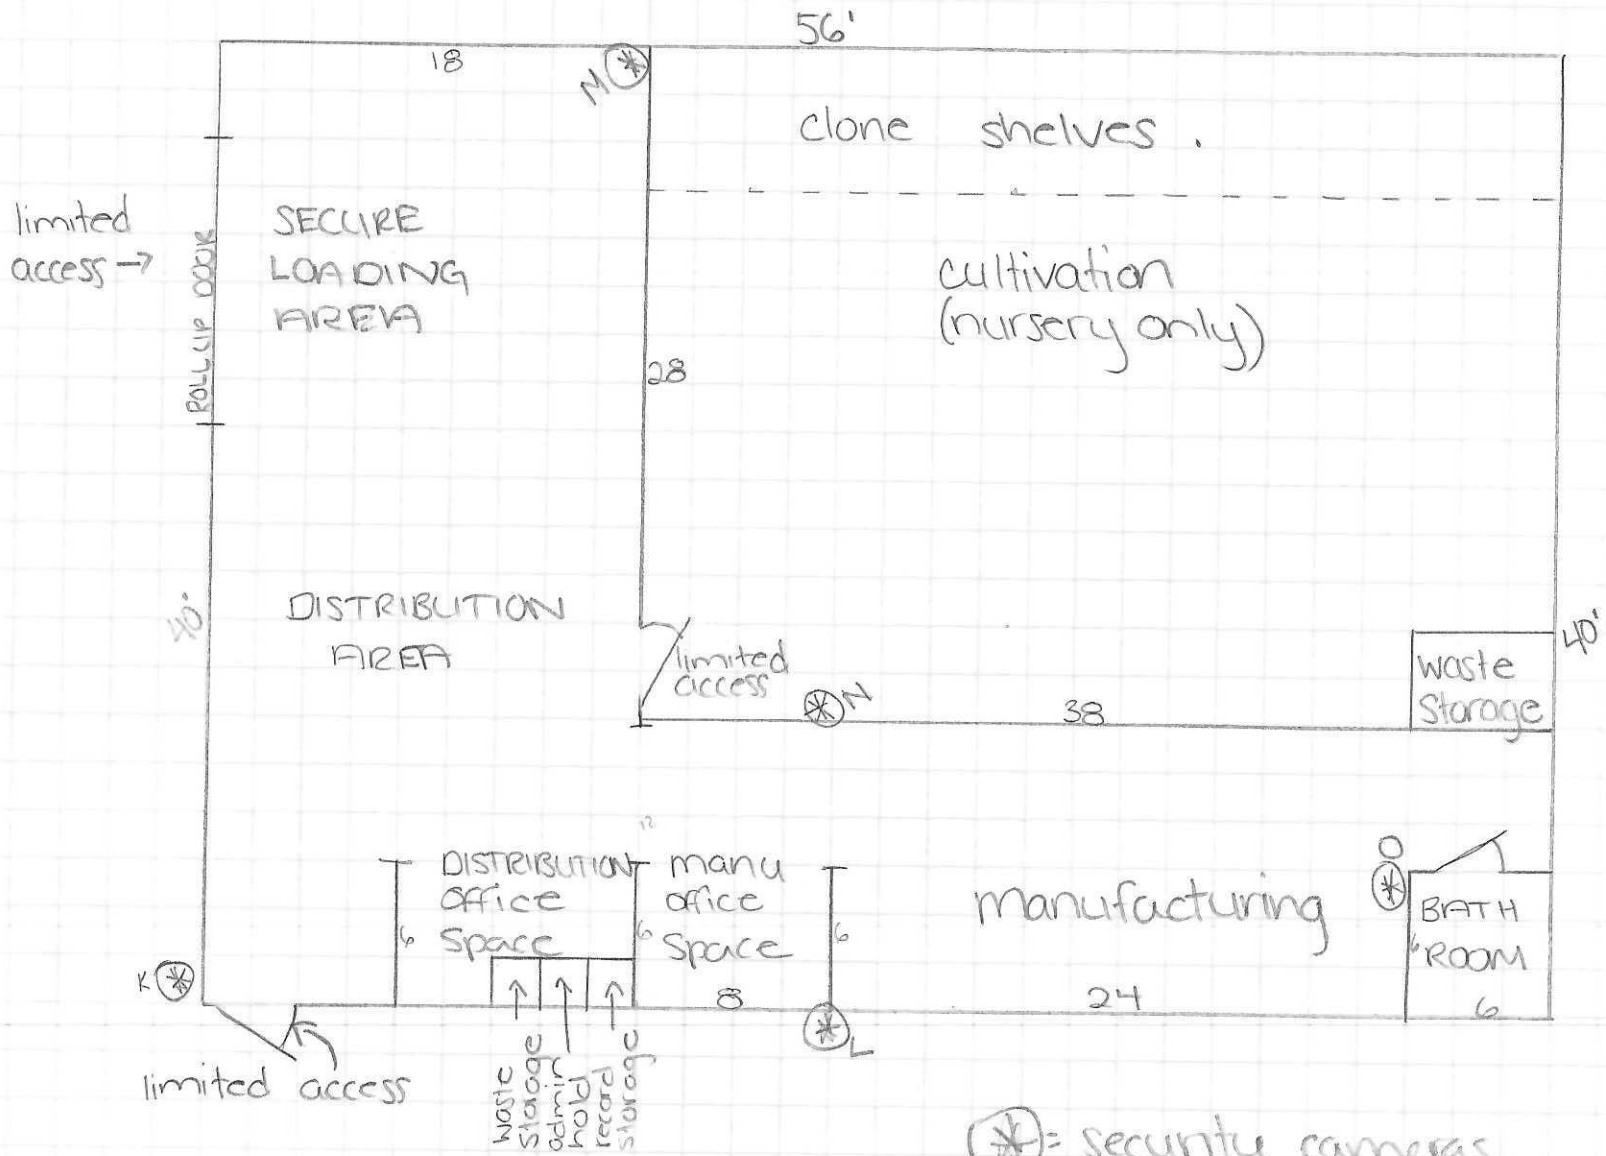 56'
18
M
clone shelves.
limited
access →
ROLL UP DOOR
SECURE
LOADING
AREA
cultivation
(nursery only)
28
40'
DISTRIBUTION
AREA
limited
access
N
38
waste
storage
40'
12
DISTRIBUTION
office
space
6
manu
office
space
6
8
6
manufacturing
24
O
BATH
ROOM
6
6
K
L
limited access
waste
storage
admin
hold
record
storage
= security cameras